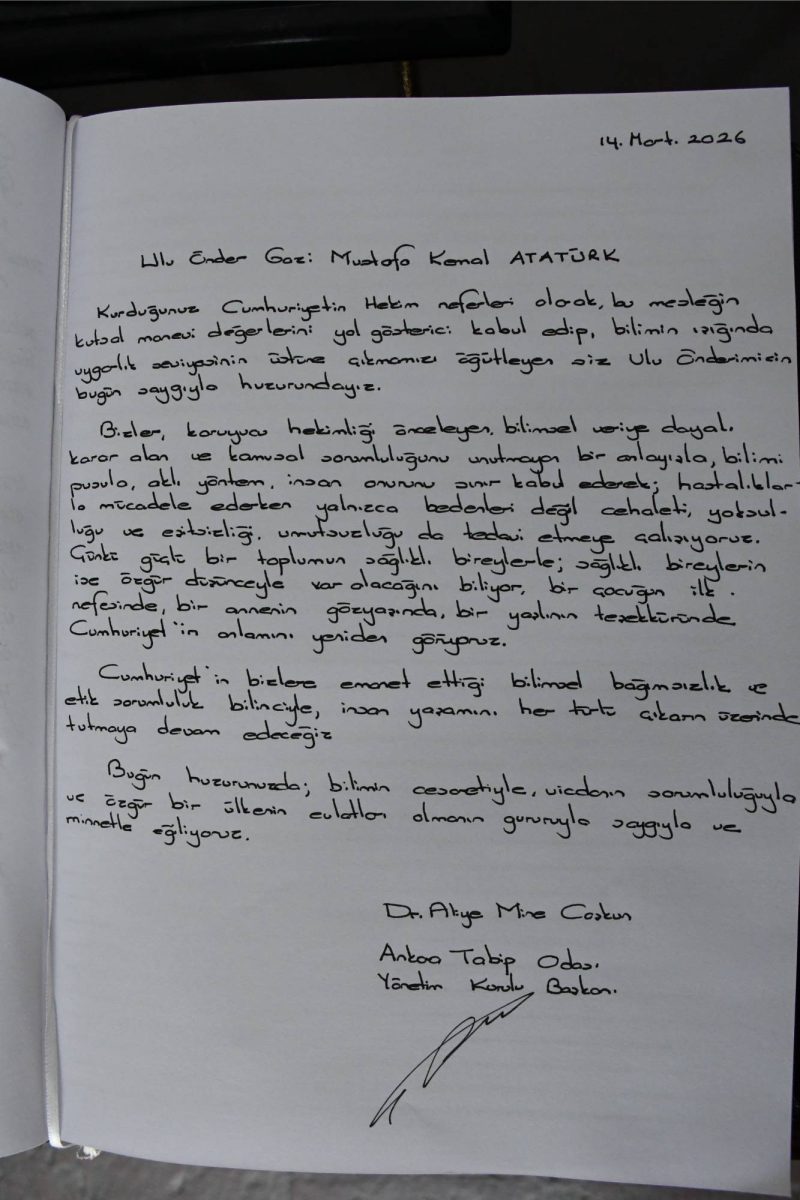 14. Mart. 2026
Ulu Önder Gazi Mustafa Kemal ATATÜRK
Kurduğunuz Cumhuriyetin Hekim neferleri olarak, bu mesleğin
kutsal manevi değerlerini yol gösterici kabul edip, bilimin ışığında
uygarlık seviyesinin üstüne çıkmamızı öğütleyen siz Ulu Önderimizin
bugün saygıyla huzurundayız.
Bizler, koruyucu hekimliği önceleyen, bilimsel veriye dayalı
karar alan ve kamusal sorumluluğunu unutmayan bir anlayışla, bilimi
pusula, aklı yöntem, insan onurunu sınır kabul ederek; hastalıklar-
la mücadele ederken yalnızca bedenleri değil cehaleti, yoksul-
luğu ve eşitsizliği, umutsuzluğu da tedavi etmeye çalışıyoruz.
Çünkü güçlü bir toplumun sağlıklı bireylerle; sağlıklı bireylerin
ise özgür düşünceyle var olacağını biliyor, bir çocuğun ilk
nefesinde, bir annenin gözyaşında, bir yaşlının teşekküründe
Cumhuriyet'in anlamını yeniden görüyoruz.
Cumhuriyet'in bizlere emanet ettiği bilimsel bağımsızlık ve
etik sorumluluk bilinciyle, insan yaşamını her türlü çıkarın üzerinde
tutmaya devam edeceğiz
Bugün huzurunuzda; bilimin cesaretiyle, vicdanın sorumluluğuyla
ve özgür bir ülkenin evlatları olmanın gururuyla saygıyla ve
minnetle eğiliyoruz.
Dr. Mine Coşkun
Ankara Tabip Odası
Yönetim Kurulu Başkanı